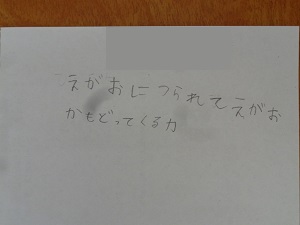 えがおにつられてえがお
かもどってくる力